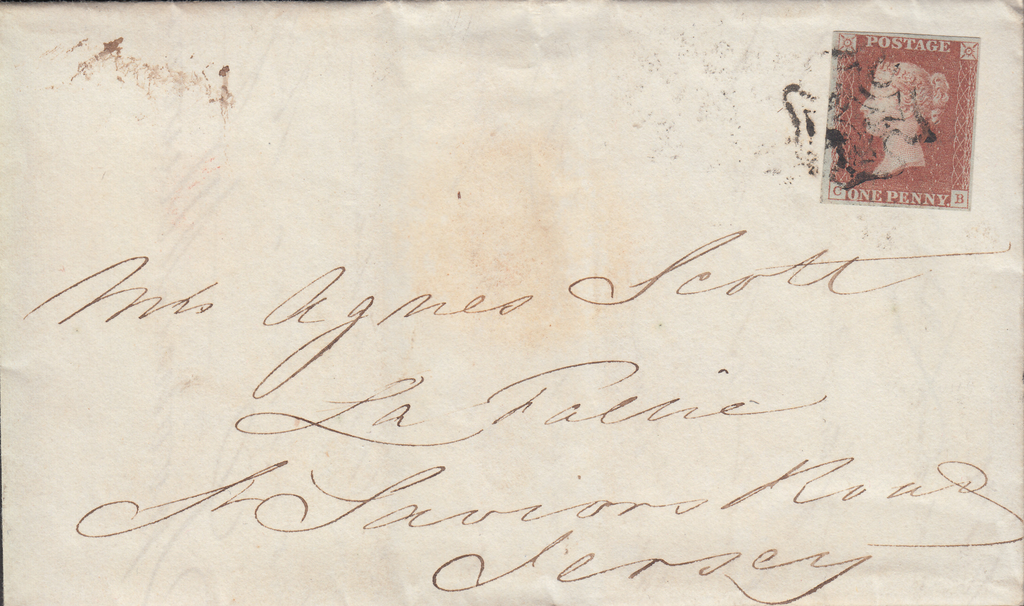 POSTAGE
C ONE PENNY B
Mrs Agnes Scott
La
St Saviors Road
Jersey